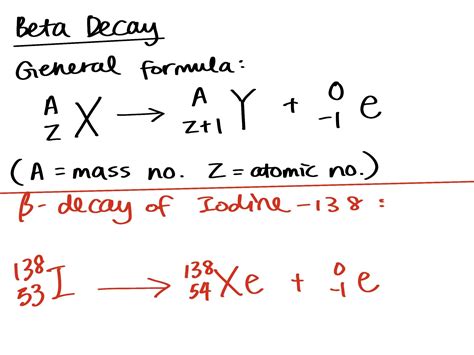 Beta Decay
General formula:
ᴬ_Z X → ᴬ_Z+1 Y + ⁰_-1 e
(A = mass no. Z = atomic no.)
β- decay of Iodine-138:
¹³⁸₅₃I → ¹³⁸₅₄Xe + ⁰₋₁e